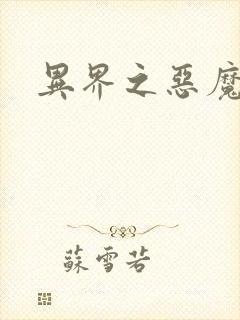 異界之惡魔
蘇雪若